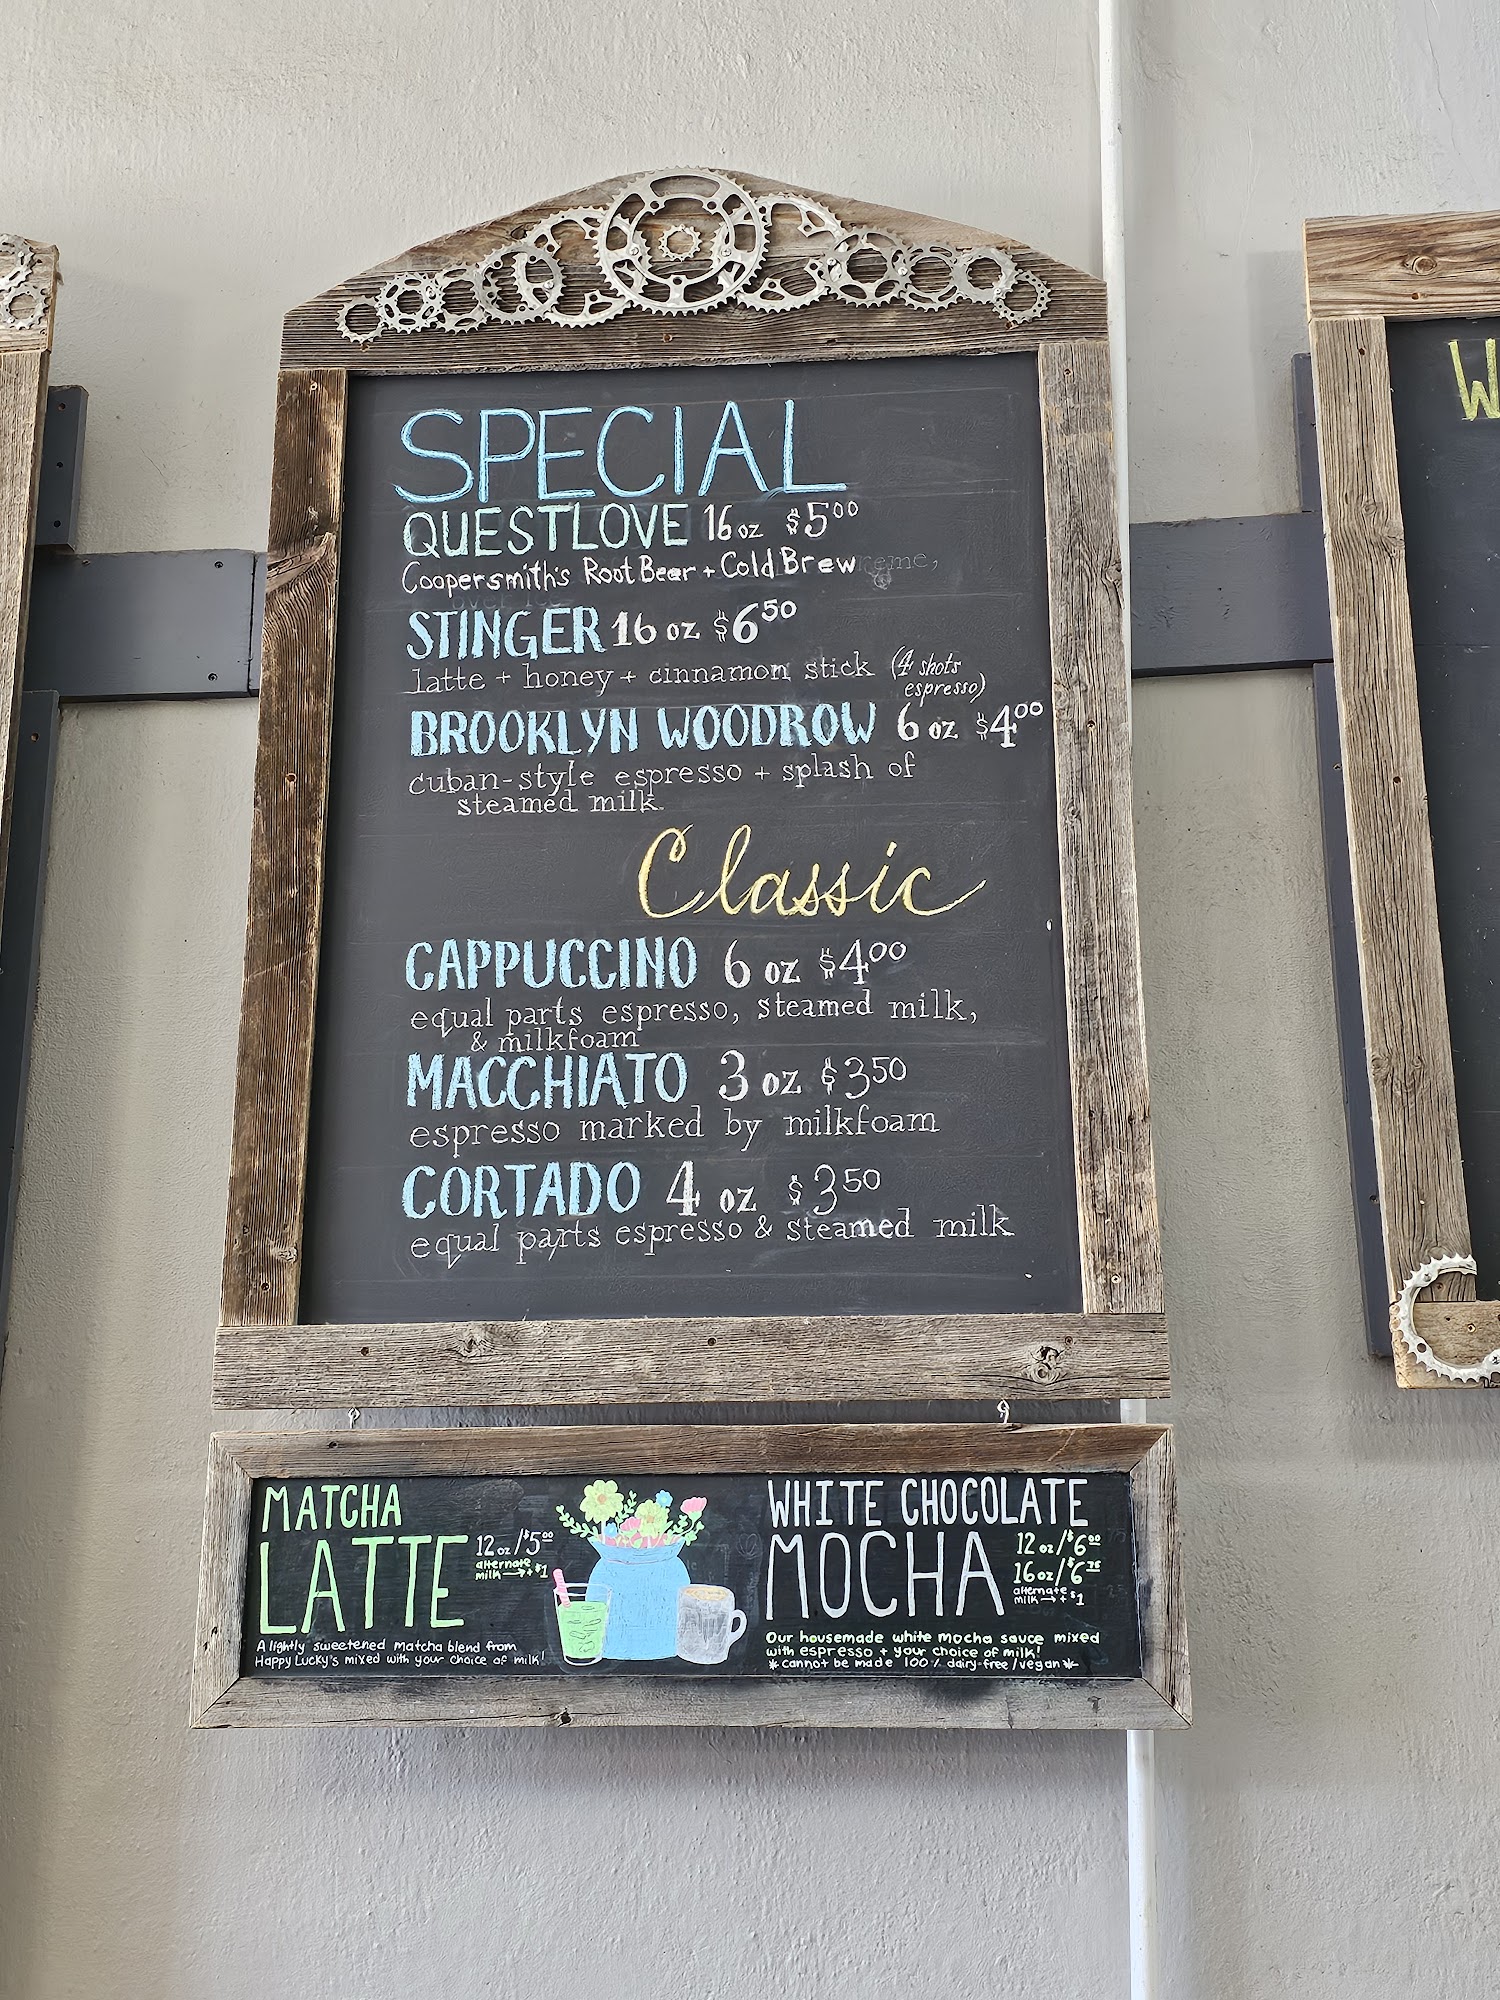 SPECIAL
QUESTLOVE 16 oz $5⁰⁰
Coopersmith's Root Beer + Cold Brew
STINGER 16 oz $6⁵⁰
latte + honey + cinnamon stick (4 shots
espresso)
BROOKLYN WOODROW 6 oz $4⁰⁰
cuban-style espresso + splash of
steamed milk
Classic
CAPPUCCINO 6 oz $4⁰⁰
equal parts espresso, steamed milk,
& milkfoam
MACCHIATO 3 oz $3⁵⁰
espresso marked by milkfoam
CORTADO 4 oz $3⁵⁰
equal parts espresso & steamed milk
MATCHA
LATTE
12 oz/$5⁰⁰
alternate
milk → + $1
A lightly sweetened matcha blend from
Happy Lucky's mixed with your choice of milk!
WHITE CHOCOLATE
MOCHA
12 oz/$6⁰⁰
16 oz/$6⁷⁵
alternate
milk → + $1
Our housemade white mocha sauce mixed
with espresso + your choice of milk!
*cannot be made 100% dairy-free/vegan*
W